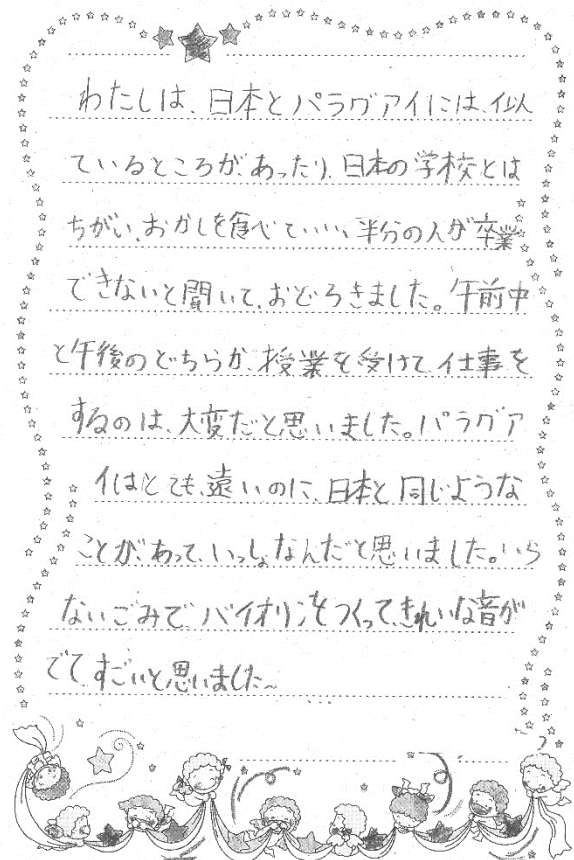 わたしは、日本とパラグアイには、似
ているところがあったり、日本の学校とは
ちがい、おかしを食べていい、半分の人が卒業
できないと聞いて、おどろきました。午前中
と午後のどちらか、授業を受けて、仕事を
するのは、大変だと思いました。パラグア
イはとても、遠いのに、日本と同じような
ことがあって、いっしょなんだと思いました。いら
ないごみで、バイオリンをつくって、きれいな音が
でて、すごいと思いました〜